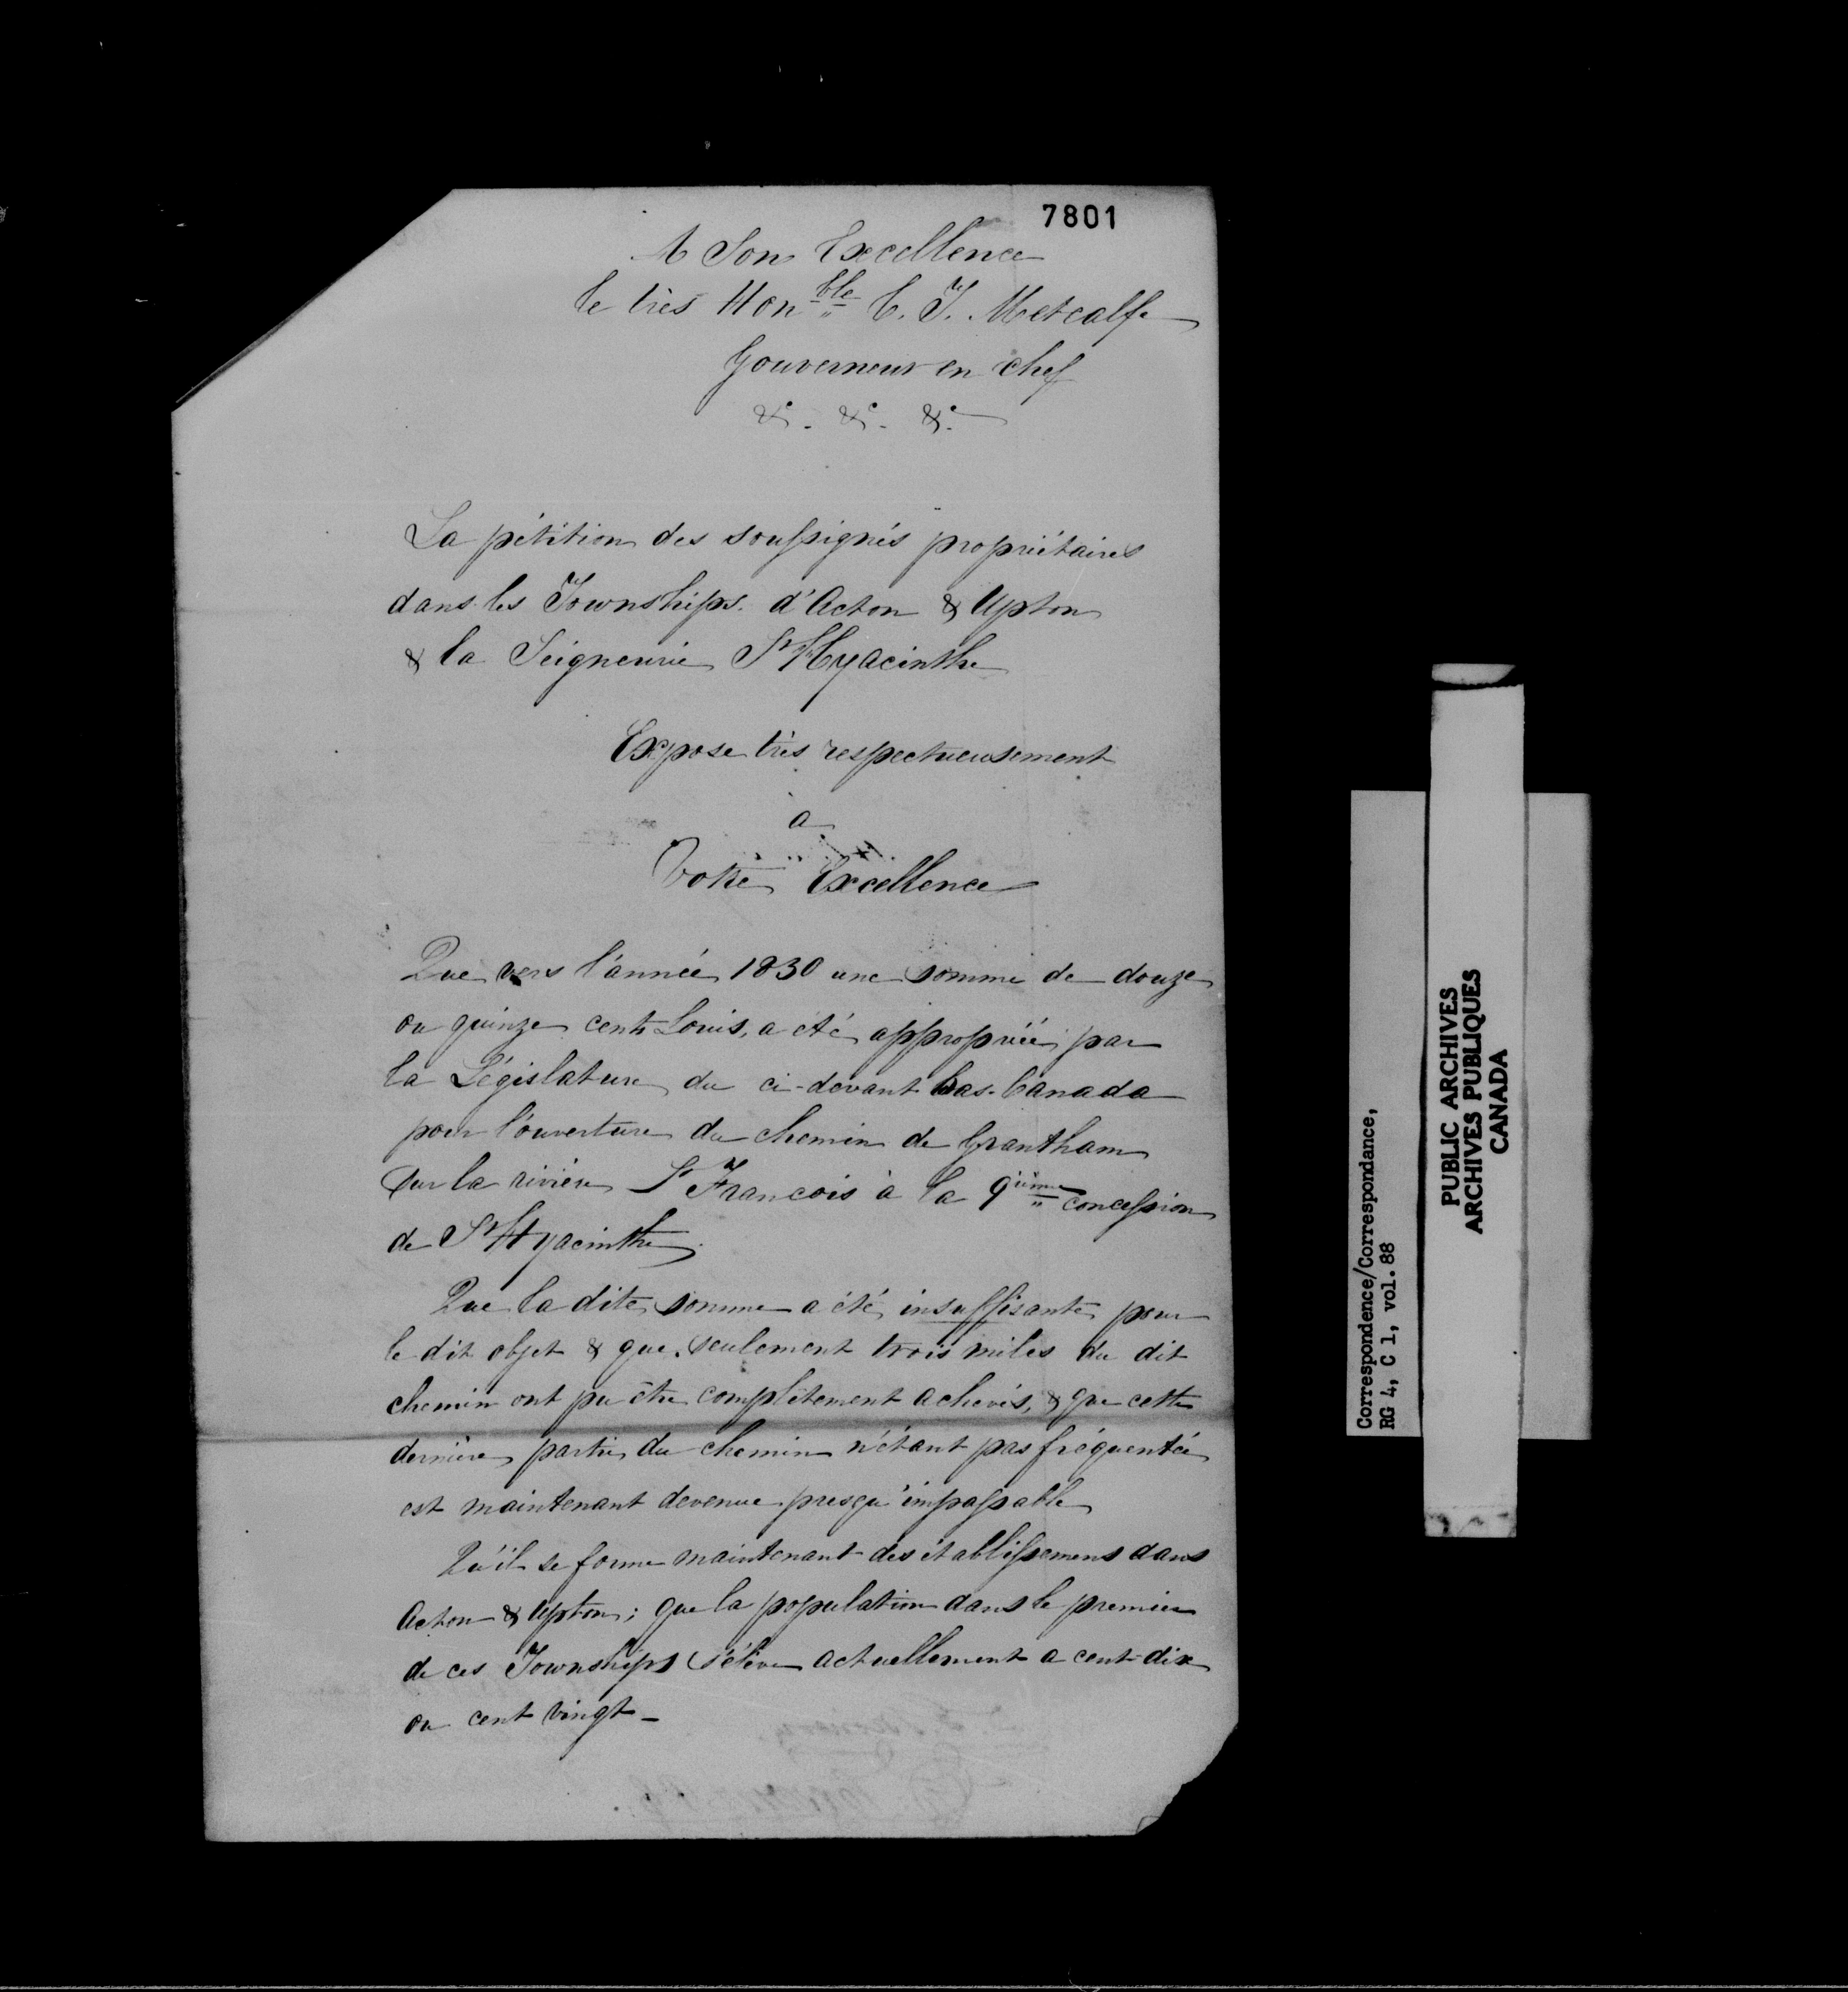 7801
A Son Excellence
le très Honble C. T. Metcalfe
Gouverneur en chef
&c. &c. &c.
La pétition des soussignés propriétaires
dans les Townships d'Acton & Upton
& la Seigneurie St Hyacinthe
Expose très respectueusement
a
Votre Excellence
Que vers l'année 1830 une somme de douze
ou quinze cents Louis, a été appropriée par
la Législature du ci-devant Bas-Canada
pour l'ouverture du chemin de Grantham
sur la rivière St Francois à la 9ième concession
de St Hyacinthe.
Que la dite somme a été insuffisante pour
le dit objet & que seulement trois miles du dit
chemin ont pu être complètement achevés, & que cette
dernière partie du chemin n'étant pas fréquentée
est maintenant devenue presqu'impassable
Qu'il se forme maintenant des établissemens dans
Acton & Upton; que la population dans le premier
de ces Townships s'élève actuellement a cent-dix
ou cent vingt -
Correspondence/Correspondance,
RG 4, C 1, vol. 88
PUBLIC ARCHIVES
ARCHIVES PUBLIQUES
CANADA